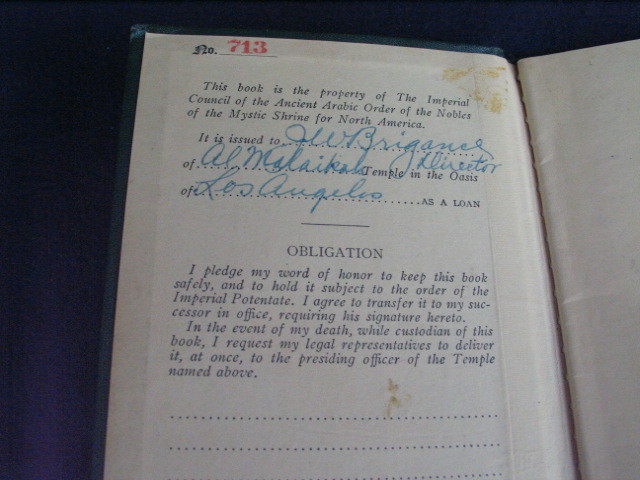 No. 713
This book is the property of The Imperial
Council of the Ancient Arabic Order of the Nobles
of the Mystic Shrine for North America.
It is issued to J W Brigance
of Al Malaikah Temple in the Oasis Director
of Los Angeles AS A LOAN
OBLIGATION
I pledge my word of honor to keep this book
safely, and to hold it subject to the order of the
Imperial Potentate. I agree to transfer it to my suc-
cessor in office, requiring his signature hereto.
In the event of my death, while custodian of this
book, I request my legal representatives to deliver
it, at once, to the presiding officer of the Temple
named above.